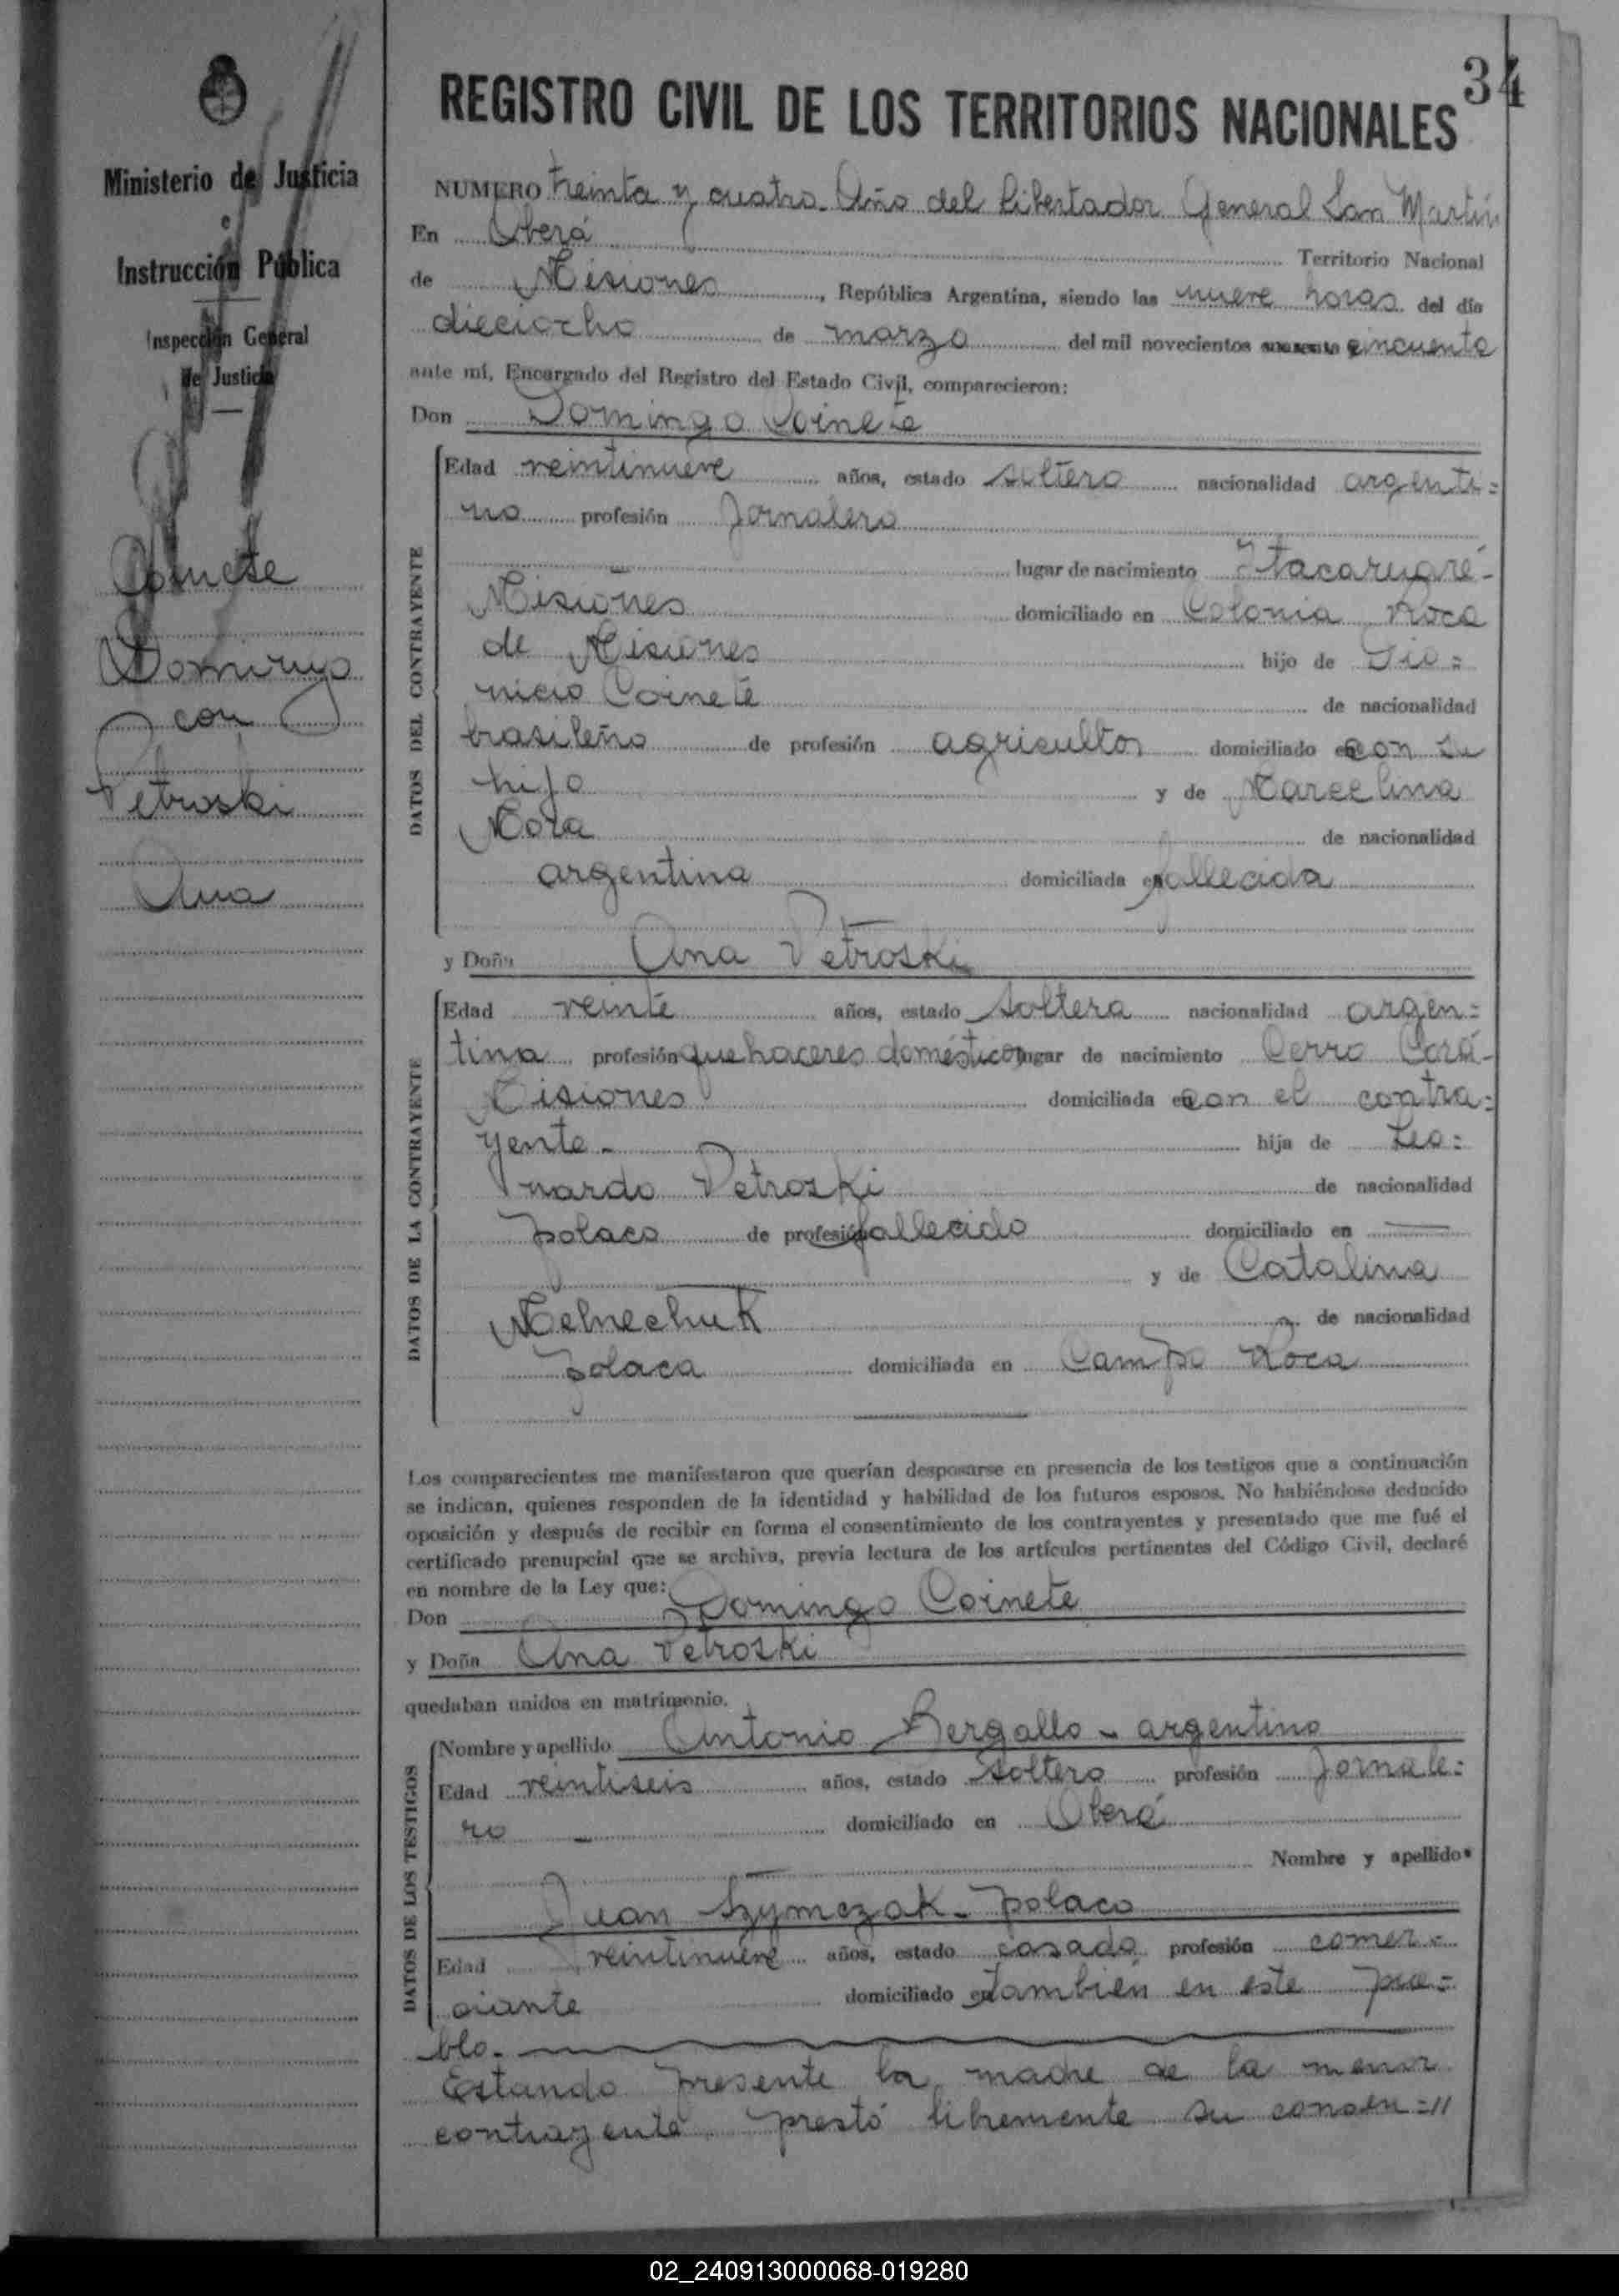 34
Ministerio de Justicia
e
Instrucción Pública
Inspección General
de Justicia
Coinete
Domingo
con
Petroski
Ana
REGISTRO CIVIL DE LOS TERRITORIOS NACIONALES
NUMERO treinta y cuatro. Año del Libertador General San Martín
En Oberá Territorio Nacional
de Misiones, República Argentina, siendo las nueve horas del día
dieciocho de marzo del mil novecientos cincuenta
ante mí, Encargado del Registro del Estado Civil, comparecieron:
Don Domingo Coinete
DATOS DEL CONTRAYENTE
Edad veintinueve años, estado soltero nacionalidad argenti=
no profesión Jornalero
lugar de nacimiento Itacaruaré-
Misiones domiciliado en Colonia Roca
de Misiones hijo de Dio=
nicio Coinete de nacionalidad
brasileño de profesión agricultor domiciliado en con su
hijo y de Marcelina
Mora de nacionalidad
argentina domiciliada en fallecida
y Doña Ana Petroski
DATOS DE LA CONTRAYENTE
Edad veinte años, estado soltera nacionalidad argen=
tina profesión quehaceres domésticos lugar de nacimiento Cerro Corá-
Misiones domiciliada en con el contra=
yente.- hija de Leo=
nardo Petroski de nacionalidad
polaco de profesión fallecido domiciliado en
y de Catalina
Melnechuk de nacionalidad
polaca domiciliada en Campo Roca
Los comparecientes me manifestaron que querían desposarse en presencia de los testigos que a continuación
se indican, quienes responden de la identidad y habilidad de los futuros esposos. No habiéndose deducido
oposición y después de recibir en forma el consentimiento de los contrayentes y presentado que me fué el
certificado prenupcial que se archiva, previa lectura de los artículos pertinentes del Código Civil, declaré
en nombre de la Ley que:
Don Domingo Coinete
y Doña Ana Petroski
quedaban unidos en matrimonio.
DATOS DE LOS TESTIGOS
Nombre y apellido Antonio Bergallo - argentino
Edad veintiseis años, estado soltero profesión Jornale=
ro - domiciliado en Oberá
Nombre y apellido
Juan Szymczak - polaco
Edad veintinueve años, estado casado profesión comer=
ciante domiciliado en también en este pue=
blo.-
Estando presente la madre de la menor
contrayente prestó libremente su consen=//
02_240913000068-019280